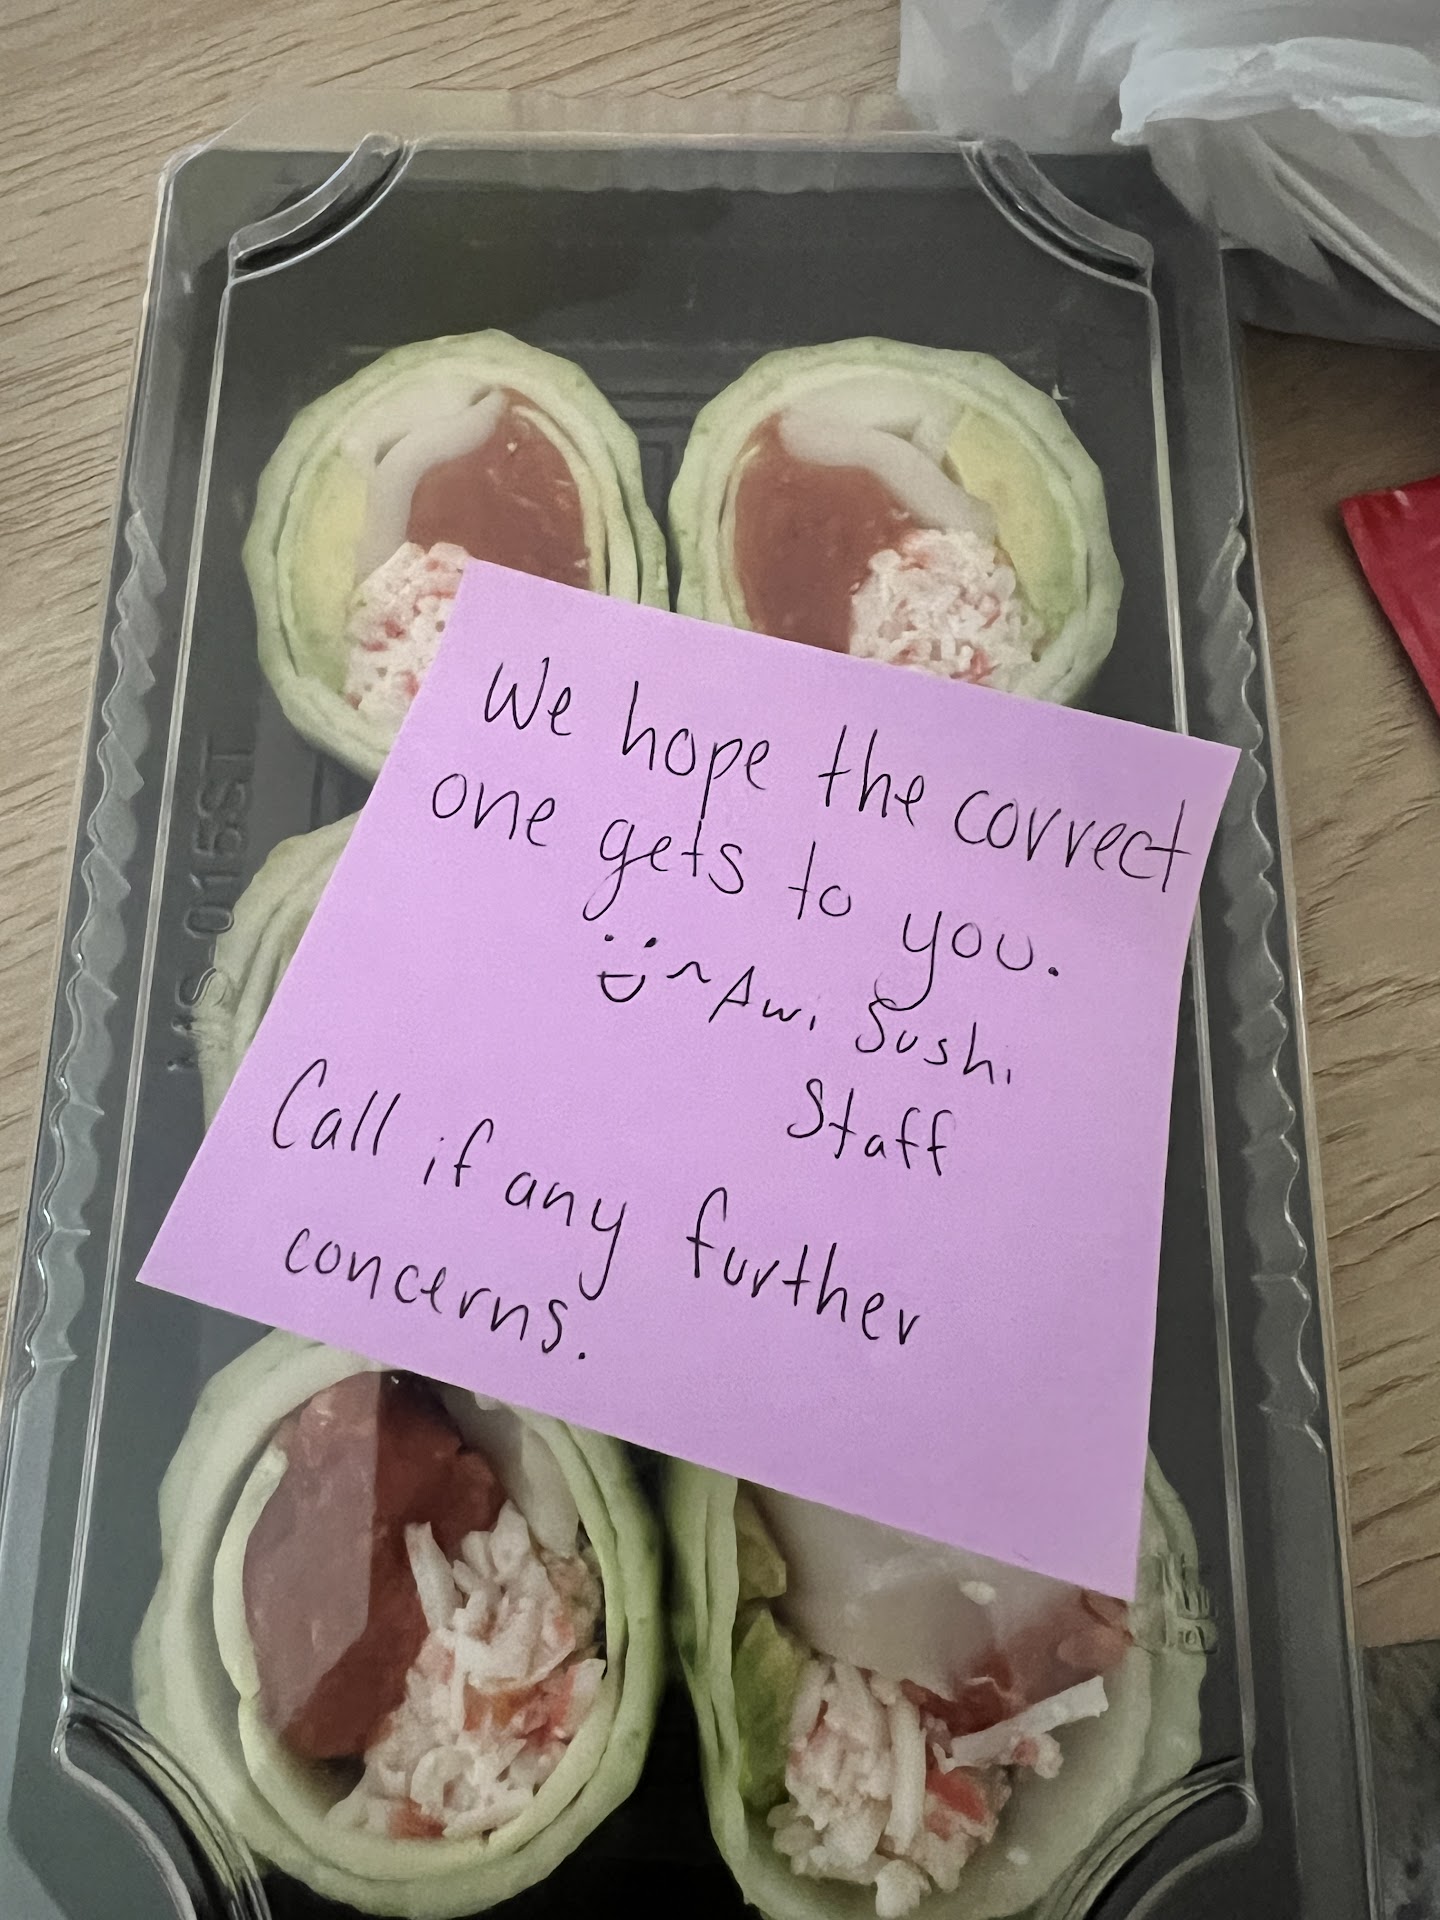 We hope the correct
one gets to you.
~Awi Sushi
Staff
Call if any further
concerns.